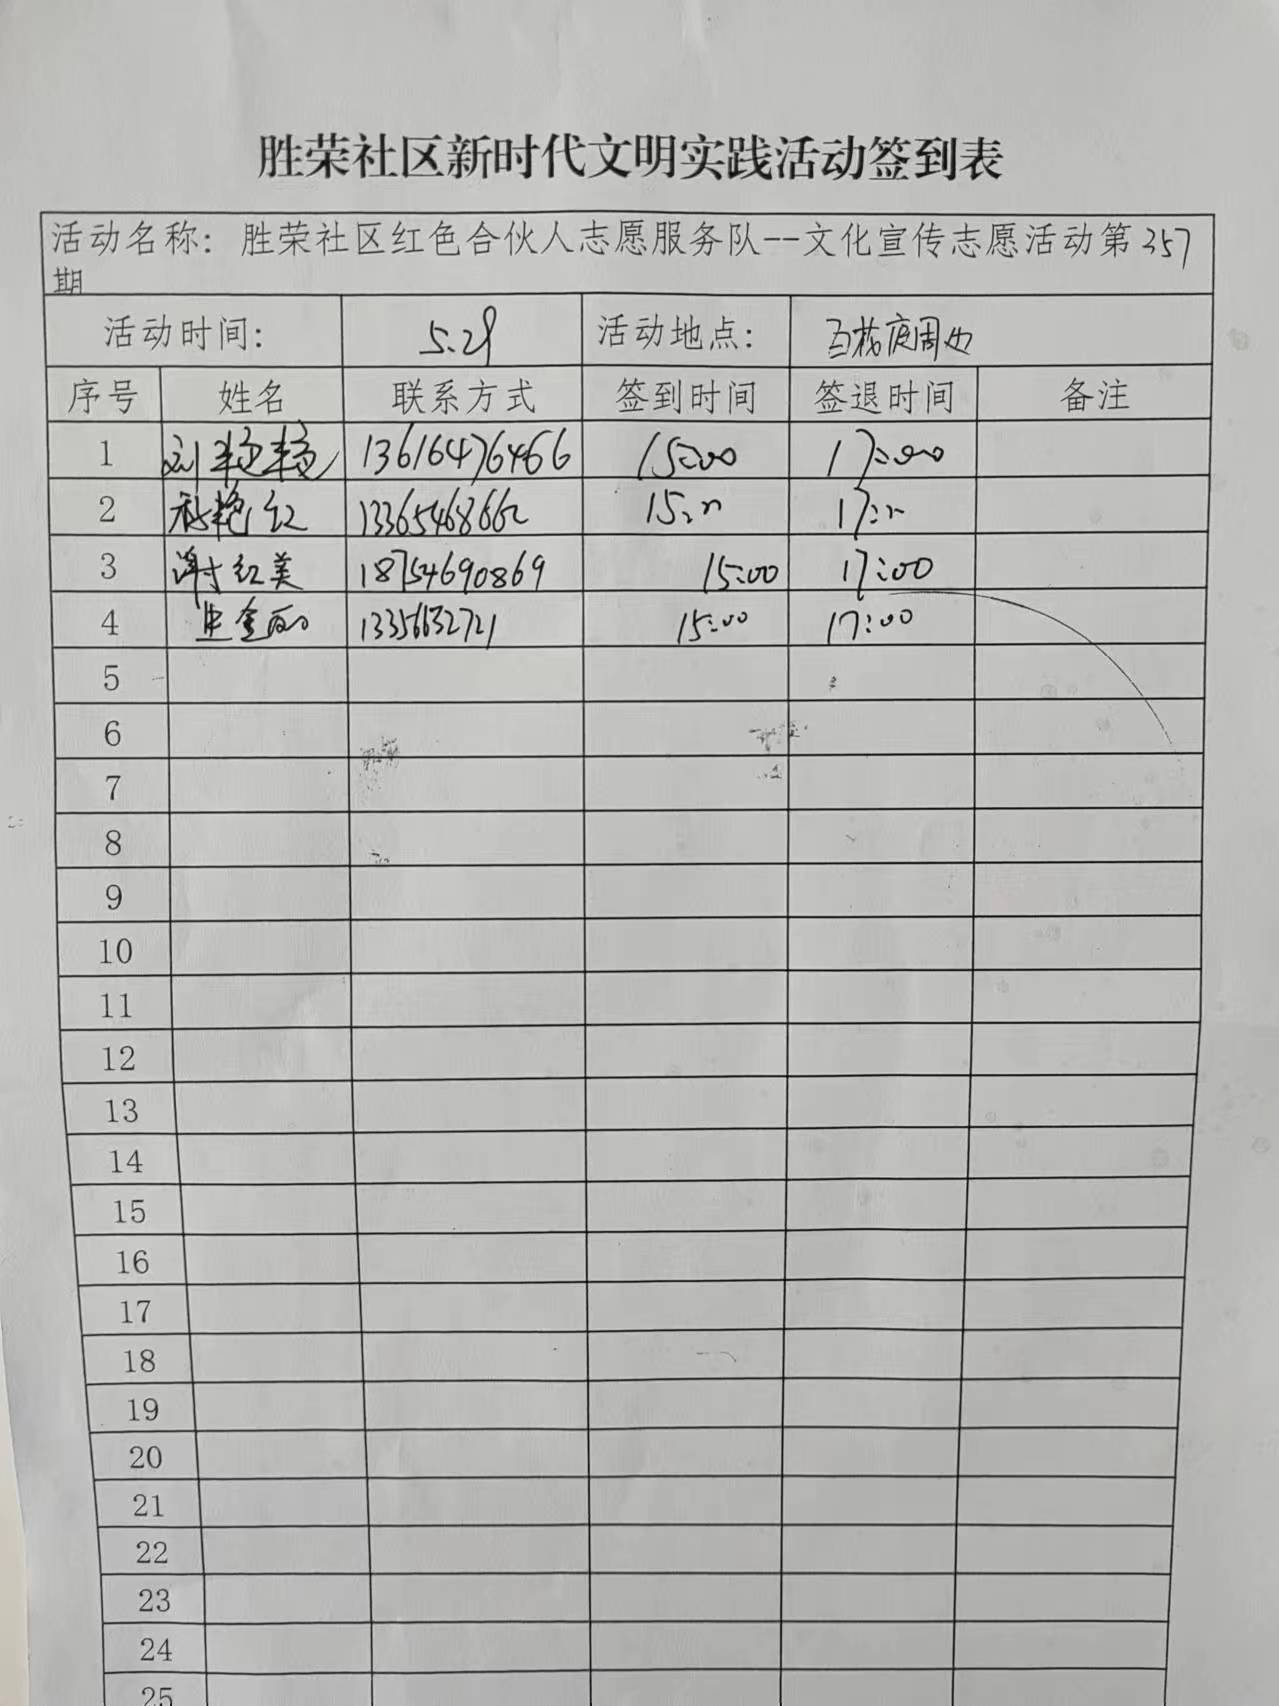 胜荣社区新时代文明实践活动签到表
活动名称：胜荣社区红色合伙人志愿服务队--文化宣传志愿活动第357
期
活动时间： 5.29 活动地点： 周边
序号 姓名 联系方式 签到时间 签退时间 备注
1 刘艳艳 13616476466 15:00 17:00
2 艳红 13365468662 15:00 17:00
3 谢红美 18754690869 15:00 17:00
4 金丽 13356632721 15:00 17:00
5
6
7
8
9
10
11
12
13
14
15
16
17
18
19
20
21
22
23
24
25